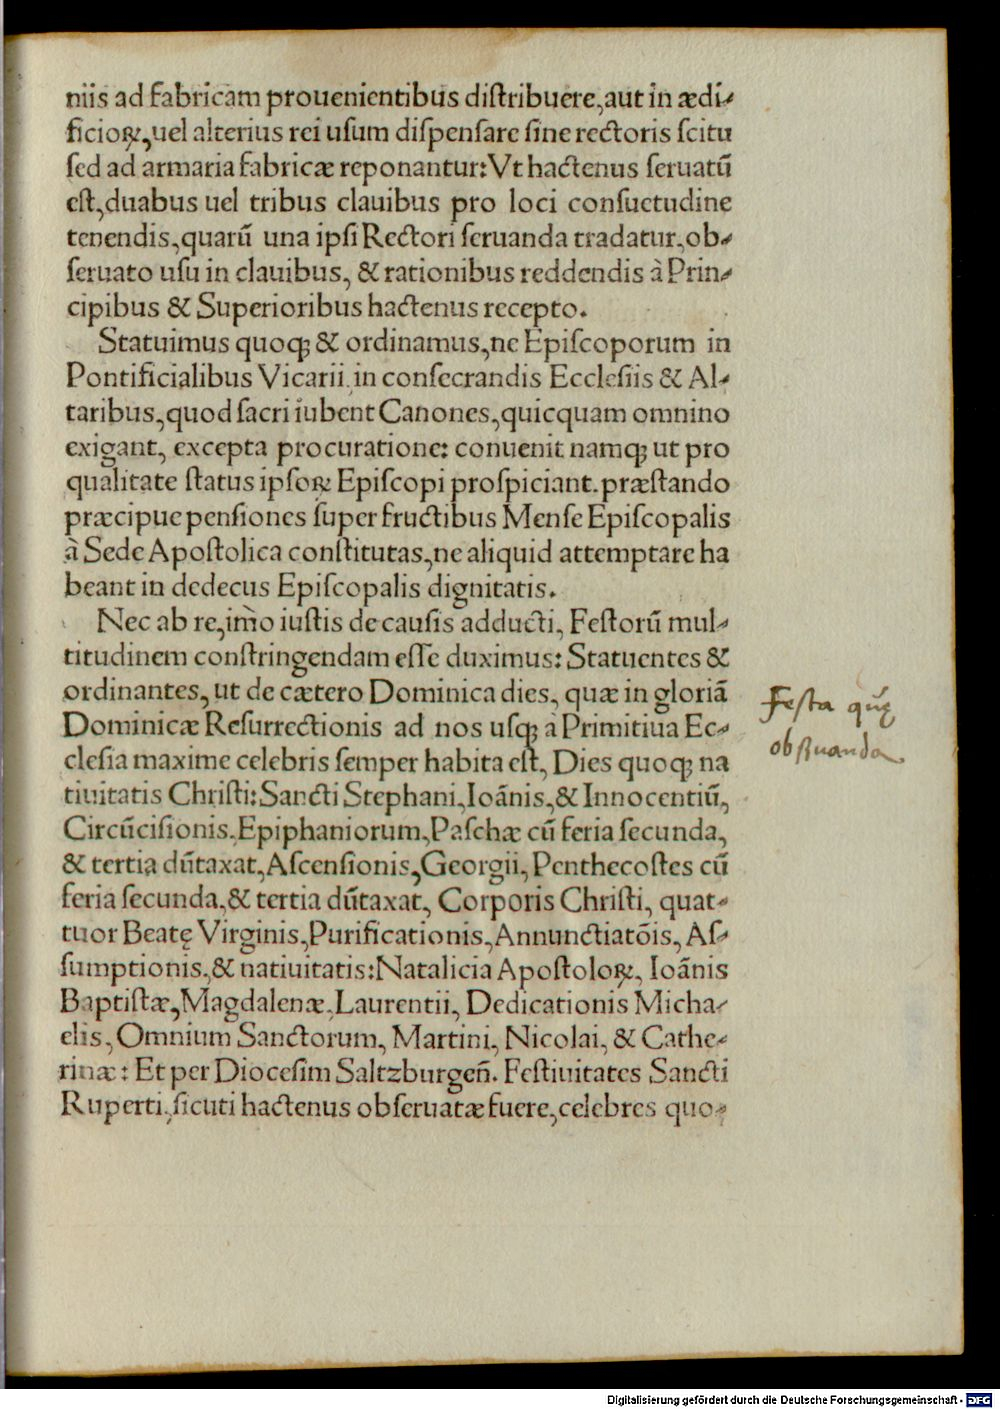 niis ad fabricam prouenientibus diſtribuere, aut in ædi⸗
ficioꝝ, uel alterius rei uſum diſpenſare ſine rectoris ſcitu
ſed ad armaria fabricæ reponantur: Vt hactenus ſeruatũ
eſt, duabus uel tribus clauibus pro loci conſuetudine
tenendis, quarũ una ipſi Rectori ſeruanda tradatur, ob⸗
ſeruato uſu in clauibus, & rationibus reddendis à Prin⸗
cipibus & Superioribus hactenus recepto.
Statuimus quoqꝫ & ordinamus, ne Epiſcoporum in
Pontificialibus Vicarii, in conſecrandis Eccleſiis & Al⸗
taribus, quod ſacri iubent Canones, quicquam omnino
exigant, excepta procuratione: conuenit namqꝫ ut pro
qualitate ſtatus ipſoꝝ Epiſcopi proſpiciant. præſtando
præcipue penſiones ſuper fructibus Menſe Epiſcopalis
à Sede Apoſtolica conſtitutas, ne aliquid attemptare ha
beant in dedecus Epiſcopalis dignitatis.
Nec ab re, im̀o iuſtis de cauſis adducti, Feſtorũ mul⸗
titudinem conſtringendam eſſe duximus: Statuentes &
ordinantes, ut de cætero Dominica dies, quæ in gloriã
Dominicæ Reſurrectionis ad nos uſqꝫ à Primitiua Ec⸗
cleſia maxime celebris ſemper habita eſt, Dies quoqꝫ na
tiuitatis Chriſti: Sancti Stephani, Ioãnis, & Innocentiũ,
Circũciſionis. Epiphaniorum, Paſchæ cũ feria ſecunda,
& tertia dũtaxat, Aſcenſionis, Georgii, Penthecoſtes cũ
feria ſecunda, & tertia dũtaxat, Corporis Chriſti, quat⸗
tuor Beatę Virginis, Purificationis, Annunctiatõis, Aſ⸗
ſumptionis, & natiuitatis: Natalicia Apoſtoloꝝ, Ioãnis
Baptiſtæ, Magdalenæ, Laurentii, Dedicationis Micha⸗
elis, Omnium Sanctorum, Martini, Nicolai, & Cathe⸗
rinæ: Et per Dioceſim Saltzburgen̄. Feſtiuitates Sancti
Ruperti, ſicuti hactenus obſeruatæ fuere, celebres quo⸗
Festa
obſeruanda
Digitalisierung gefördert durch die Deutsche Forschungsgemeinschaft - DFG